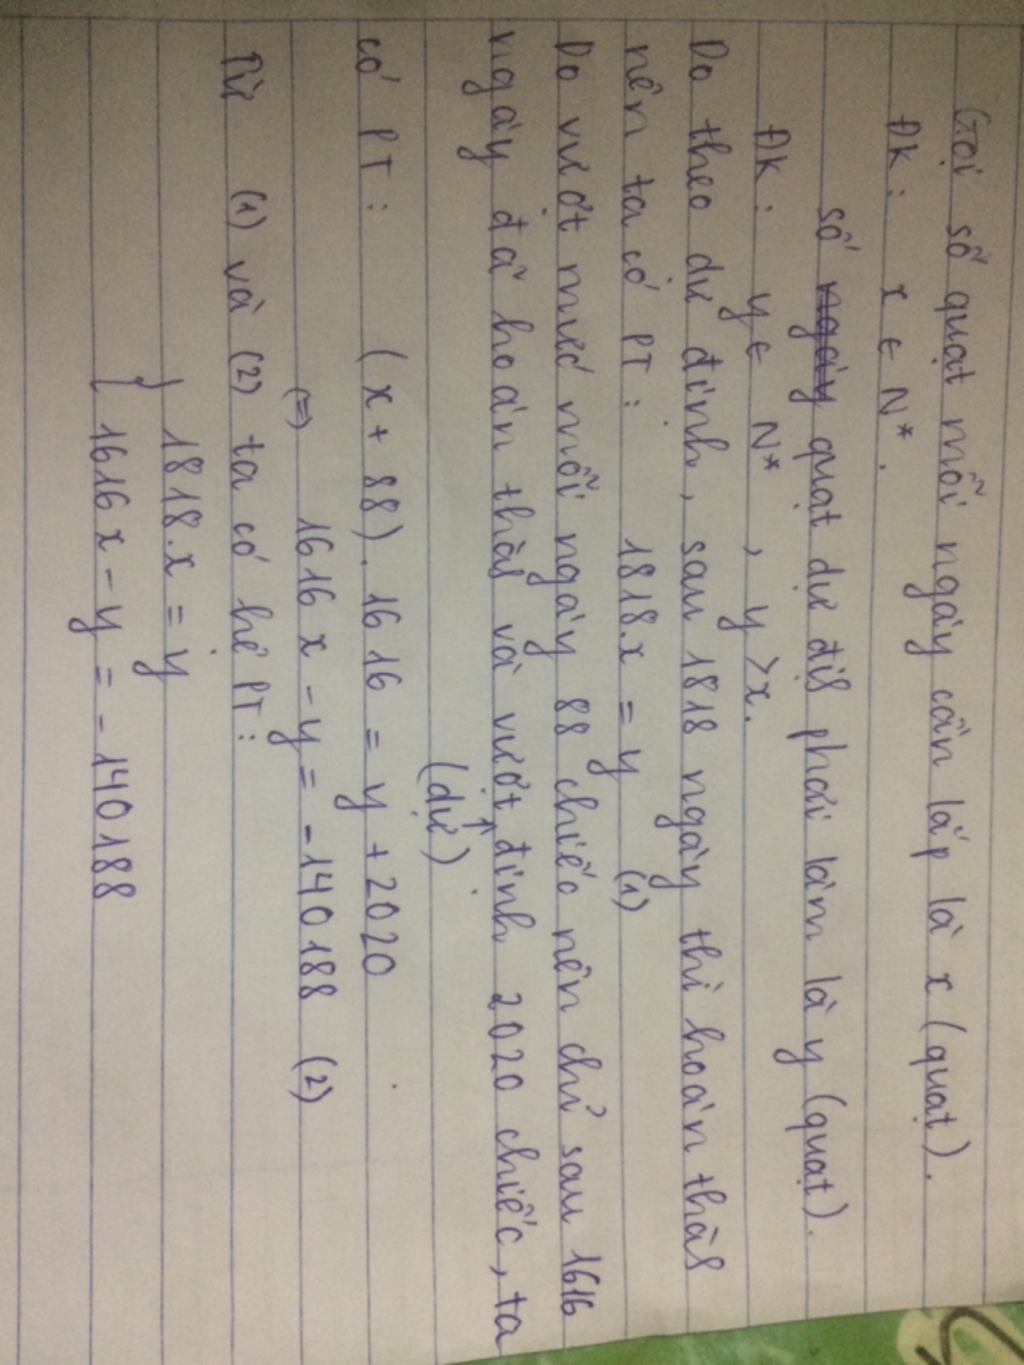 Gọi số quạt mỗi ngày cần lắp là x (quạt).
ĐK: x ∈ N*.
số ngày quạt dự địß phải làm là y (quạt).
ĐK: y ∈ N*, y > x.
Do theo dự định, sau 1818 ngày thì hoàn thàß
nên ta có PT: 1818.x = y (1)
Do vượt mức mỗi ngày 88 chiếc nên chỉ sau 1616
ngày đã hoàn thàß và vượt định 2020 chiếc, ta
(dự)
có PT: (x + 88). 1616 = y + 2020
(=) 1616x - y = -140188 (2)
Từ (1) và (2) ta có hệ PT:
{ 1818.x = y
{ 1616x - y = -140188